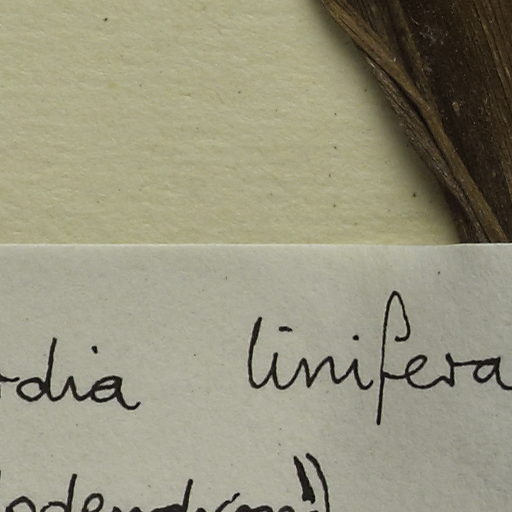 rdia linifera
odendron!)